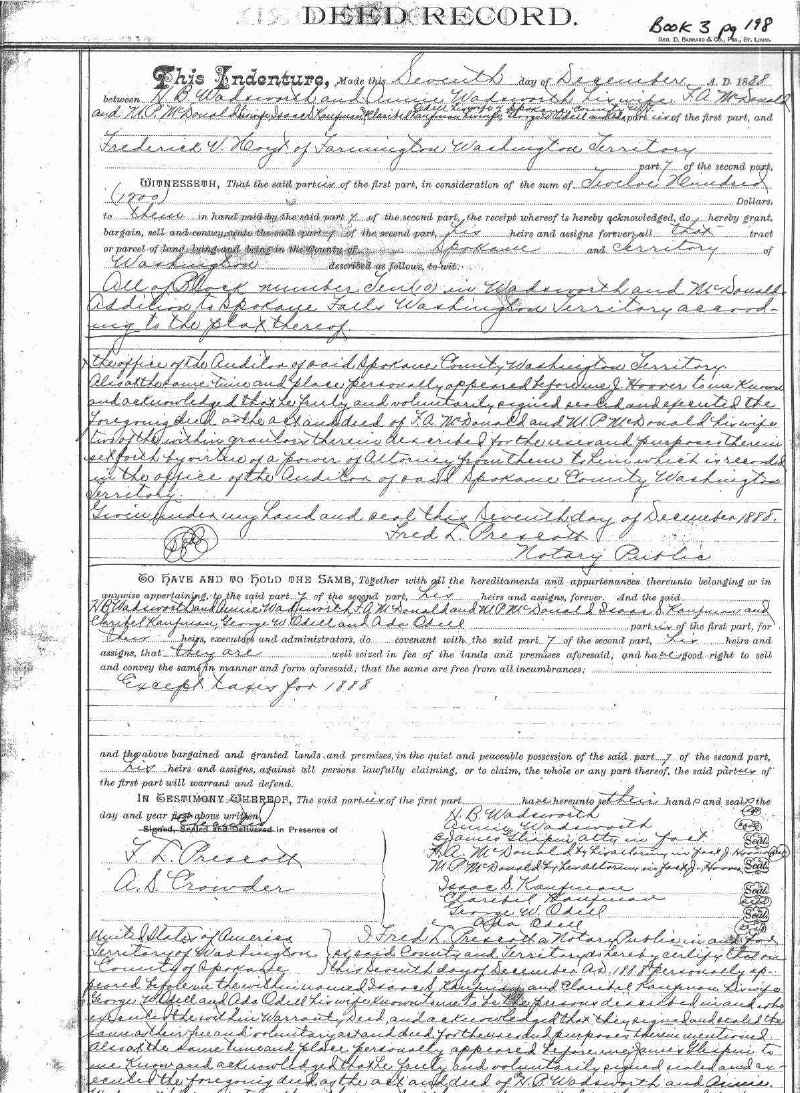 DEED RECORD.
Book 3 pg 198
Geo. D. Barnard & Co., Prs., St. Louis.
This Indenture, Made this Seventh day of December A. D. 1888
between H. B. Wadsworth and Annie Wadsworth his wife F. A. McDonald
and M. P. McDonald his wife, Isaac S. Kaufman Claribel Kaufman his wife George W. Odell and Ada Odell his wife of Spokane County parties of the first part, and
Frederick V. Hoyt of Farmington Washington Territory
party of the second part,
WITNESSETH, That the said parties of the first part, in consideration of the sum of Twelve Hundred
(1200) Dollars,
to them in hand paid by the said party of the second part, the receipt whereof is hereby acknowledged, do hereby grant,
bargain, sell and convey, unto the said party of the second part, his heirs and assigns forever, all that tract
or parcel of land lying and being in the County of Spokane and Territory of
Washington described as follows, to-wit:
All of Block number Ten (10) in Wadsworth and McDonald
Addition to Spokane Falls Washington Territory accord-
ing to the plat thereof.
the office of the Auditor of said Spokane County Washington Territory
Also at the same time and place personally appeared before me J. Hoover to me known
and acknowledged that he freely and voluntarily signed sealed and executed the
foregoing deed as the act and deed of F. A. McDonald and M. P. McDonald his wife
two of the within grantors therein described for the uses and purposes therein
set forth by virtue of a power of Attorney from them to him which is recorded
in the office of the Auditor of said Spokane County Washington
Territory.
Given under my hand and seal this Seventh day of December 1888.
Fred L. Prescott
Notary Public
TO HAVE AND TO HOLD THE SAME, Together with all the hereditaments and appurtenances thereunto belonging or in
anywise appertaining, to the said party of the second part, his heirs and assigns, forever. And the said
H. B. Wadsworth and Annie Wadsworth, F. A. McDonald and M. P. McDonald Isaac S. Kaufman and
Claribel Kaufman, George W. Odell and Ada Odell parties of the first part, for
their heirs, executors and administrators, do covenant with the said party of the second part, his heirs and
assigns, that they are well seized in fee of the lands and premises aforesaid, and have good right to sell
and convey the same in manner and form aforesaid; that the same are free from all incumbrances;
Except taxes for 1888
and the above bargained and granted lands and premises, in the quiet and peaceable possession of the said party of the second part,
his heirs and assigns, against all persons lawfully claiming, or to claim, the whole or any part thereof, the said parties of
the first part will warrant and defend.
IN TESTIMONY WHEREOF, The said parties of the first part have hereunto set their hands and seals the
day and year first above written.
Executed
Signed, Sealed and Delivered in Presence of
F. L. Prescott
A. S. Crowder
H. B. Wadsworth
Annie Wadsworth
by James Glispin atty in fact Seal
F. A. McDonald by his attorney in fact J. Hoover
M. P. McDonald by his attorney in fact J. Hoover Seal
Isaac S. Kaufman Seal
Claribel Kaufman Seal
George W. Odell Seal
Ada Odell
United States of America
Territory of Washington
County of Spokane
I Fred L. Prescott a Notary Public in and for
said County and Territory do hereby certify that on
this Seventh day of December A.D. 1888 personally ap-
peared before me the within named Isaac S. Kaufman and Claribel Kaufman his wife
George W Odell and Ada Odell his wife known to me to be the persons described in and who
executed the within Warranty Deed, and acknowledged that they signed and sealed the
same as their free and voluntary act and deed for the uses and purposes therein mentioned.
Also at the same time and place personally appeared before me James Glispin to
me known and acknowledged that he freely and voluntarily signed sealed and ex-
ecuted the foregoing deed, as the act and deed of H. B. Wadsworth and Annie